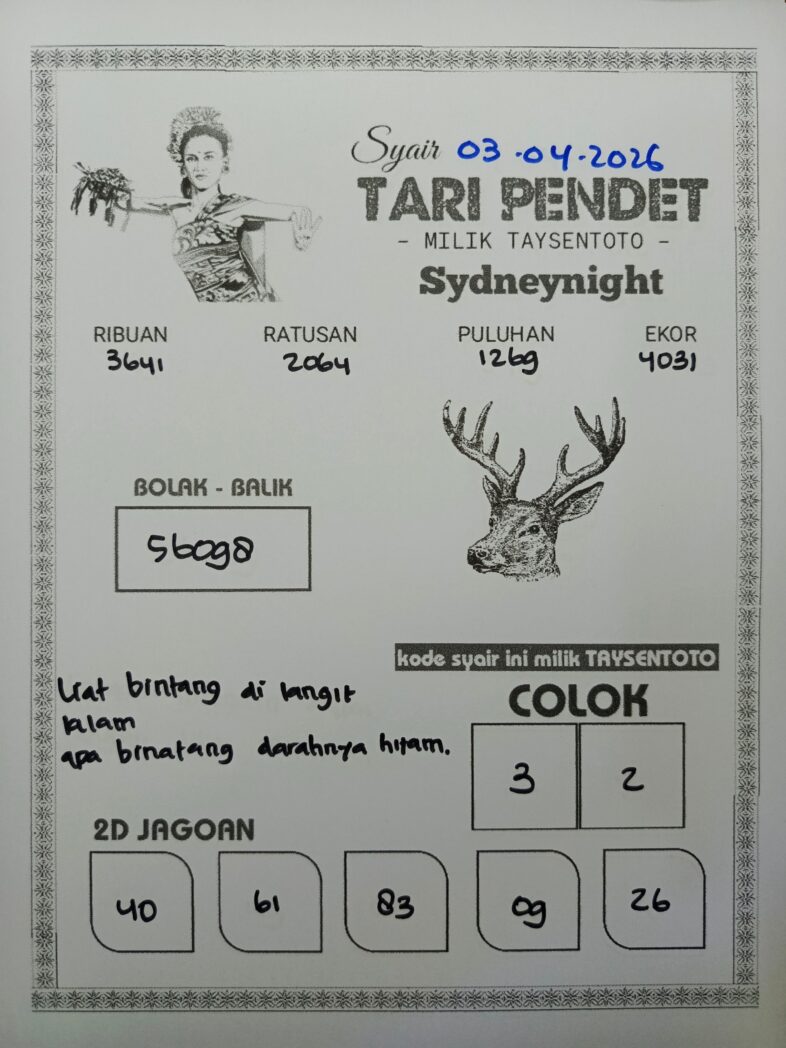 Syair 03.04.2026
TARI PENDET
- MILIK TAYSENTOTO -
Sydneynight
RIBUAN RATUSAN PULUHAN EKOR
3641 2064 1269 4031
BOLAK - BALIK
56098
kode syair ini milik TAYSENTOTO
Liat bintang di langit
kelam
apa binatang darahnya hitam.
COLOK
3 2
2D JAGOAN
40 61 83 09 26